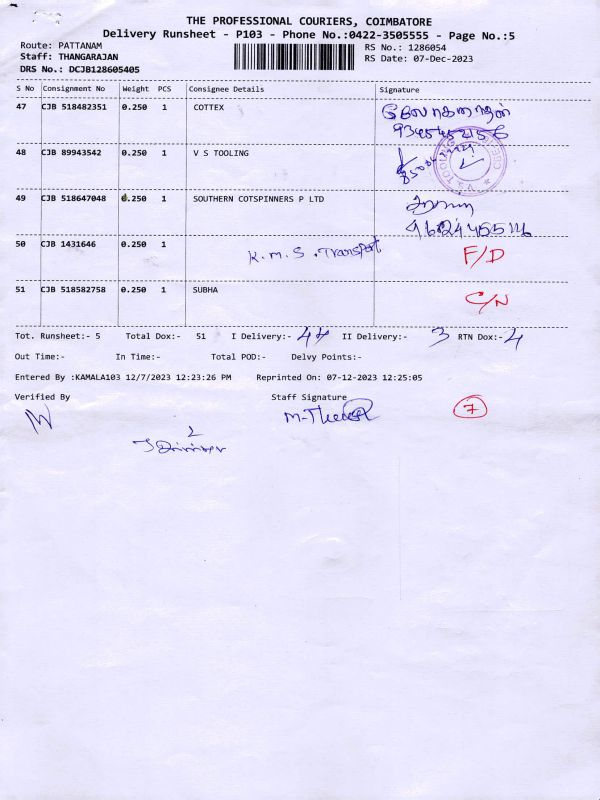 THE PROFESSIONAL COURIERS, COIMBATORE
Delivery Runsheet - P103 - Phone No.:0422-3505555 - Page No.:5
Route: PATTANAM
Staff: THANGARAJAN
DRS No.: DCJB128605405
RS No.: 1286054
RS Date: 07-Dec-2023
S No Consignment No Weight PCS Consignee Details Signature
47 CJB 518482351 0.250 1 COTTEX
48 CJB 89943542 0.250 1 V S TOOLING
49 CJB 518647048 0.250 1 SOUTHERN COTSPINNERS P LTD
50 CJB 1431646 0.250 1 K.M.S. Transport F/D
51 CJB 518582758 0.250 1 SUBHA C/N
Tot. Runsheet:- 5 Total Dox:- 51 I Delivery:- 44 II Delivery:- 3 RTN Dox:- 4
Out Time:- In Time:- Total POD:- Delvy Points:-
Entered By :KAMALA103 12/7/2023 12:23:26 PM Reprinted On: 07-12-2023 12:25:05
Verified By Staff Signature
7
2